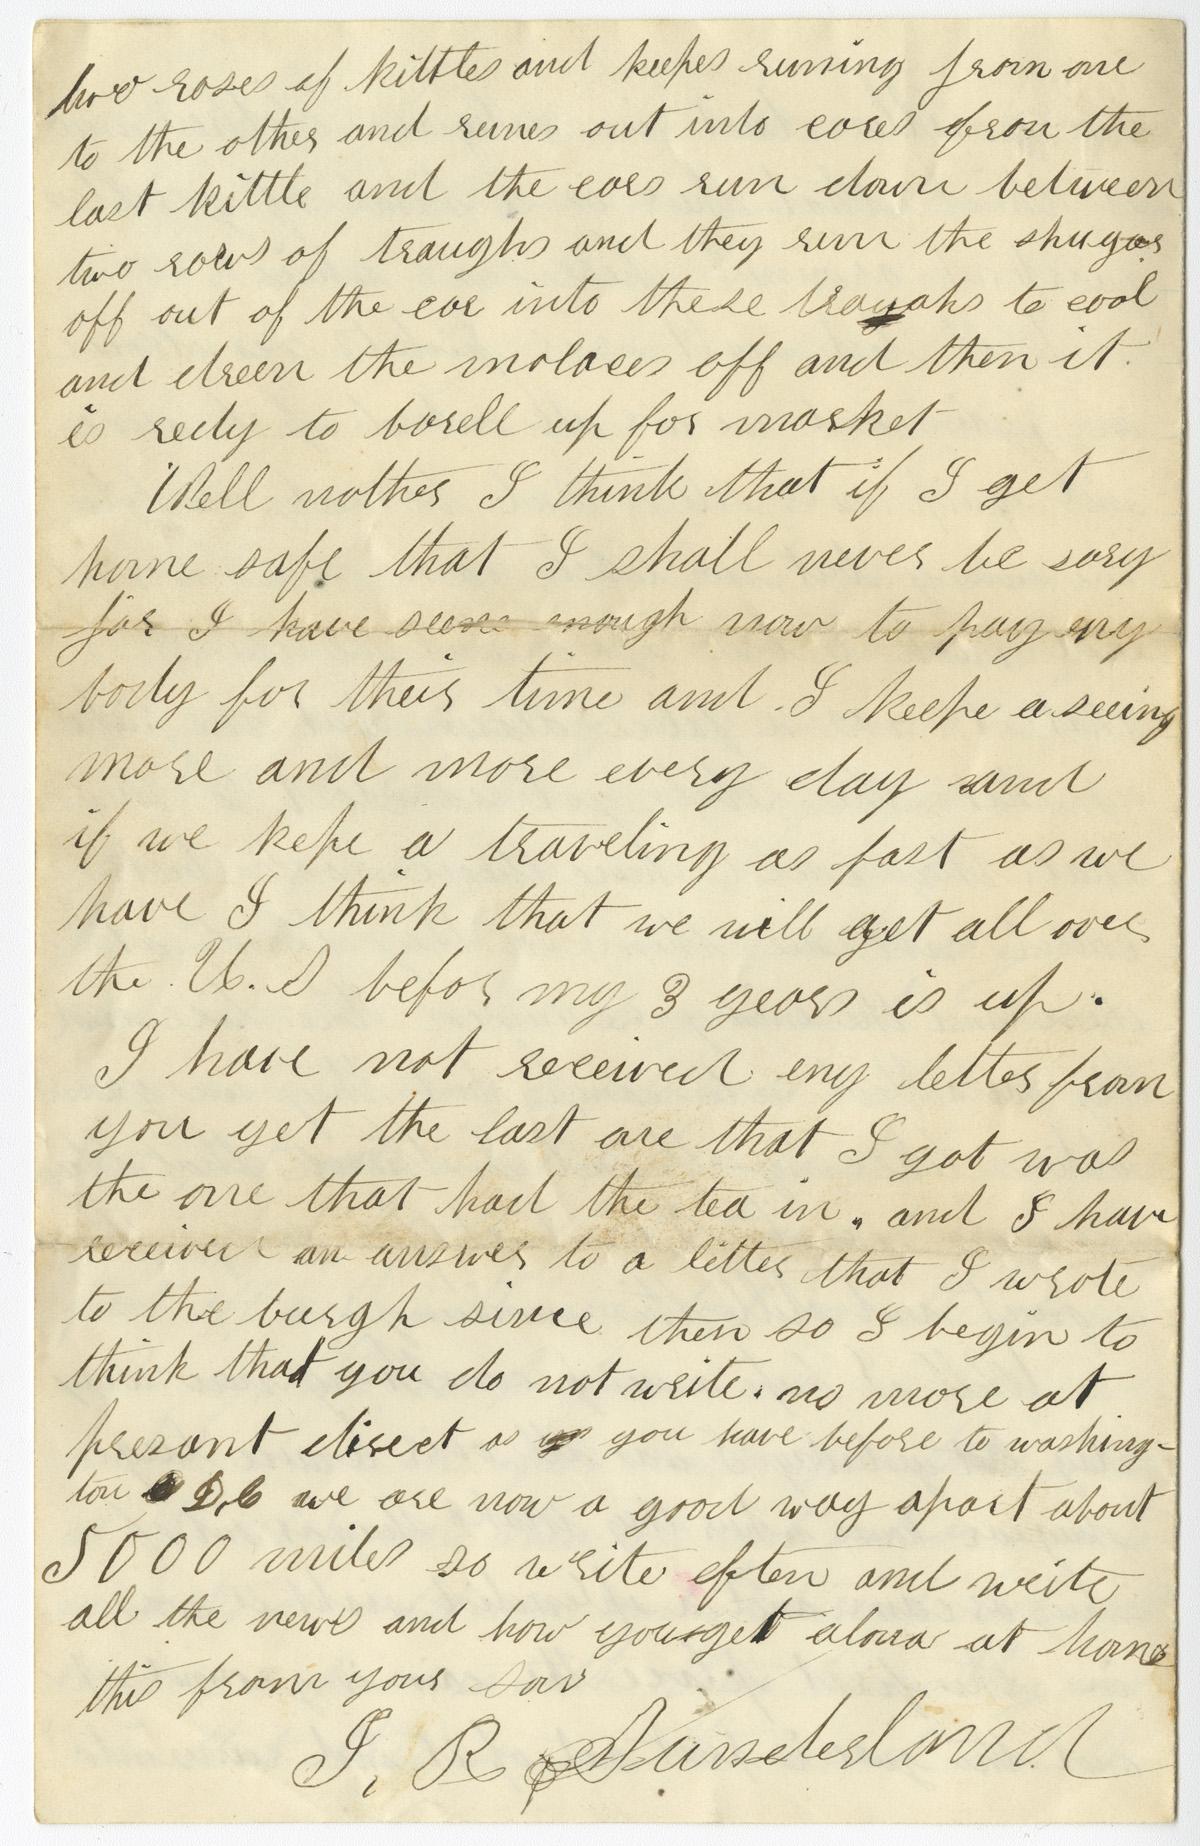 two roses of kittles and keepes runing from one
to the other and runes out into cores from the
last kittle and the cors run down between
two rows of traughs and they run the shugar
off out of the cor into these traughs to cool
and dreen the molaces off and then it
is redy to borell up for market
Well mother I think that if I get
home safe that I shall never be sory
for I have seene enough now to pay eny
body for their time and I keepe a seeing
more and more every day and
if we kepe a traveling as fast as we
have I think that we will get all over
the U.S befor my 3 years is up.
I have not received eny letter from
you yet the last one that I got was
the one that had the tea in. and I have
received an answer to a letter that I wrote
to the burgh since then so I begin to
think that you do not write. no more at
presant direct as you have before to washing-
ton D,C we are now a good way apart about
5000 miles so write often and write
all the news and how you get along at home
this from your son
J, R Sunderland